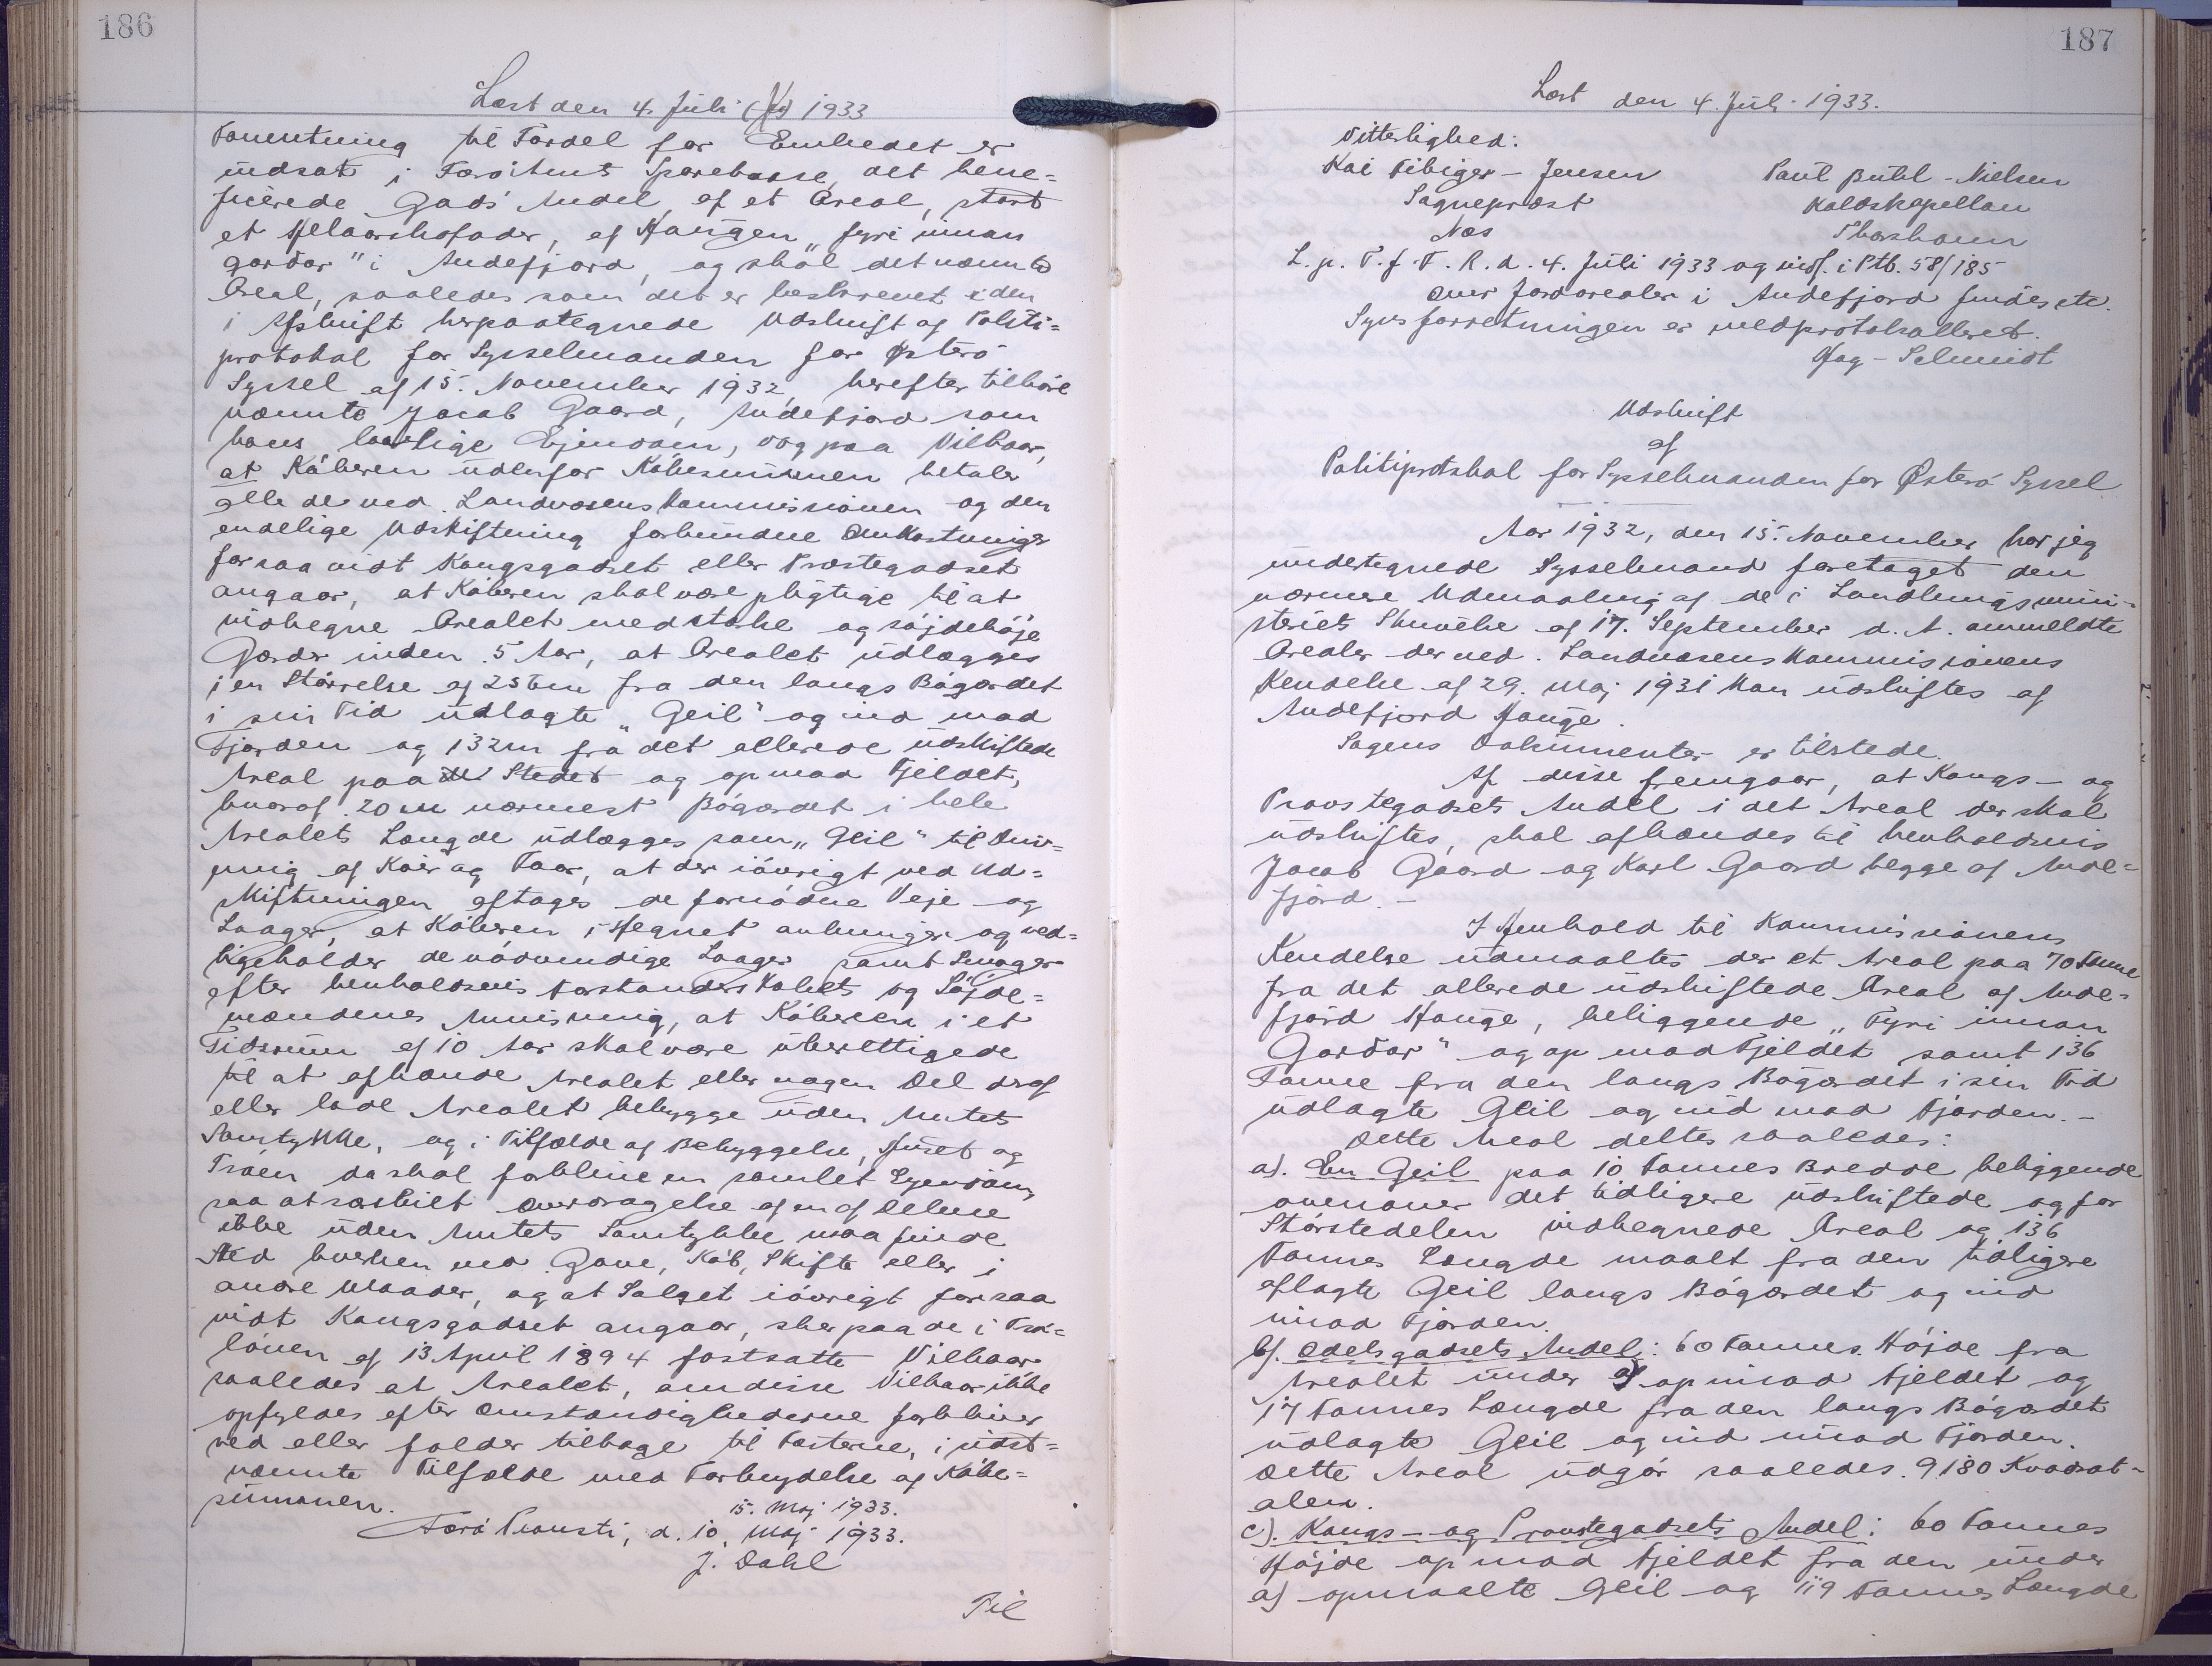 186
Læst den 4. Juli 1933
Forrentning til Fordel for Embedet er
indsat i Færö Amts Sparekasse, det bene=
ficerede Gods' Andel af et Areal, stort
et Helaarskofoder, af Haugen "fyri innan
gardar" i Andefjord, og skal det nævnte
Areal, saaledes som det er beskrevet i den
i Afskrift herpaategnede Udskrift af Politi=
protokol for Sysselmanden for Østerö
Syssel af 15. November 1932, herefter tilhöre
nævnte Jacob Gaard, Andefjord som
hans lovlige Ejendom, dog paa Vilkaar,
at Köberen udenfor Köbesummen betaler
alle de ved Landvæsenskommissionen og den
endelige Udskiftning forbundne Omkostninger
forsaavidt Kongsgodset eller Præstegodset
angaar, at Köberen skal være pligtige til at
indhegne Arealet med stærke og söjdehöje
Gærder inden 5 Aar, at Arealet udlægges
i en Störrelse af 256m fra den langs Bögærdet
i sin Tid udlagte "Geil" og ind mod
Fjorden og 132m fra det allerede udskiftede
Areal paa Stedet og op mod Fjeldet,
hvoraf 20 m nærmest Bögærdet i hele
Arealets Længde udlægges som "Geil" til Driv=
ning af Köer og Faar, at der iövrigt ved Ud=
skiftningen aftages de fornödne Veje og
Laager, at Köberen i Hegnet anbringer og ved=
ligeholder de nödvendige Laager samt Smoger
efter henholdsvis Forstanderskabets og Söjde=
mændenes Anvisning, at Köberen i et
Tidsrum af 10 Aar skal være uberettigede
til at afhænde Arealet eller nogen Del deraf
eller lade Arealet bebygge uden Amtets
Samtykke, og i Tilfælde af Bebyggelse, Huset og
Tröen da skal forblive en samlet Ejendom,
saa at særskilt Overdragelse af en af Delene
ikke uden Amtets Samtykke maa finde
Sted hverken ved Gave, Köb, Skifte eller i
andre Maader, og at Salget iövrigt forsaa
vidt Kongsgodset angaar, sker paa de i Trö=
loven af 13 April 1894 fastsatte Vilkaar
saaledes at Arealet, om disse Vilkaar ikke
opfyldes efter Omstændighederne forbliver
ved eller falder tilbage til Fæsterne, i sidst=
nævnte Tilfælde med Forbrydelse af Köbe=
summen.
15. Maj 1933.
Færö Provsti, d. 10. Maj 1933.
J. Dahl
Til
187
Læst den 4. Juli 1933.
Vitterlighed:
Kai Fibiger-Jensen Paul Buhl-Nielsen
Sognepræst Kaldskapellan
Næs Thorshavn
L. p. T. f. F. R. d. 4. Juli 1933 og indf. i Ptb. 58/185
Over Jordarealer i Andefjord findes etc.
Synsforretningen er medprotokolleret.
Fog-Schmidt
Udskrift
af
Politiprotokol for Sysselmanden for Østerö Syssel.
Aar 1932, den 15. November har jeg
undertegnede Sysselmand foretaget den
nærmere Udmaaling af de i Landbrugsmini-
steriets Skrivelse af 17. September d. A. ommeldte
Arealer der ved Landvæsenskommissionens
Kendelse af 29. Maj 1931 kan udskiftes af
Andefjord Hauge.
Sagens Dokumenter er tilstede.
Af disse fremgaar, at Kongs- og
Præstegodsets Andel i det Areal der skal
udskiftes, skal afhændes til henholdsvis
Jacob Gaard og Karl Gaard begge af Ande=
fjord.-
I Henhold til Kommissionens
Kendelse udmaaltes der et Areal paa 70 Favne
fra det allerede udskiftede Areal af Ande=
fjord Hauge, beliggende "Fyri innan
Gardar" og op mod Fjeldet samt 136
Favne fra den langs Bögærdet i sin Tid
udlagte Geil og ind mod Fjorden.-
Dette Areal deltes saaledes:
a). En Geil paa 10 Favnes Bredde beliggende
ovenover det tidligere udskiftede og for
Störstedelen indhegnede Areal og 136
Favnes Længde maalt fra den tidligere
aflagte Geil langs Bögærdet og ind
imod Fjorden.
b). Odelsgodsets Andel: 60 Favnes Höjde fra
Arealet under a) op imod Fjeldet og
17 Favnes Længde fra den langs Bögærdet
udlagte Geil og ind imod Fjorden.
Dette Areal udgör saaledes 9180 Kvadrat-
alen.
c). Kongs- og Præstegodsets Andel: 60 Favnes
Höjde op mod Fjeldet fra den under
a) opmaalte Geil og 119 Favnes Længde